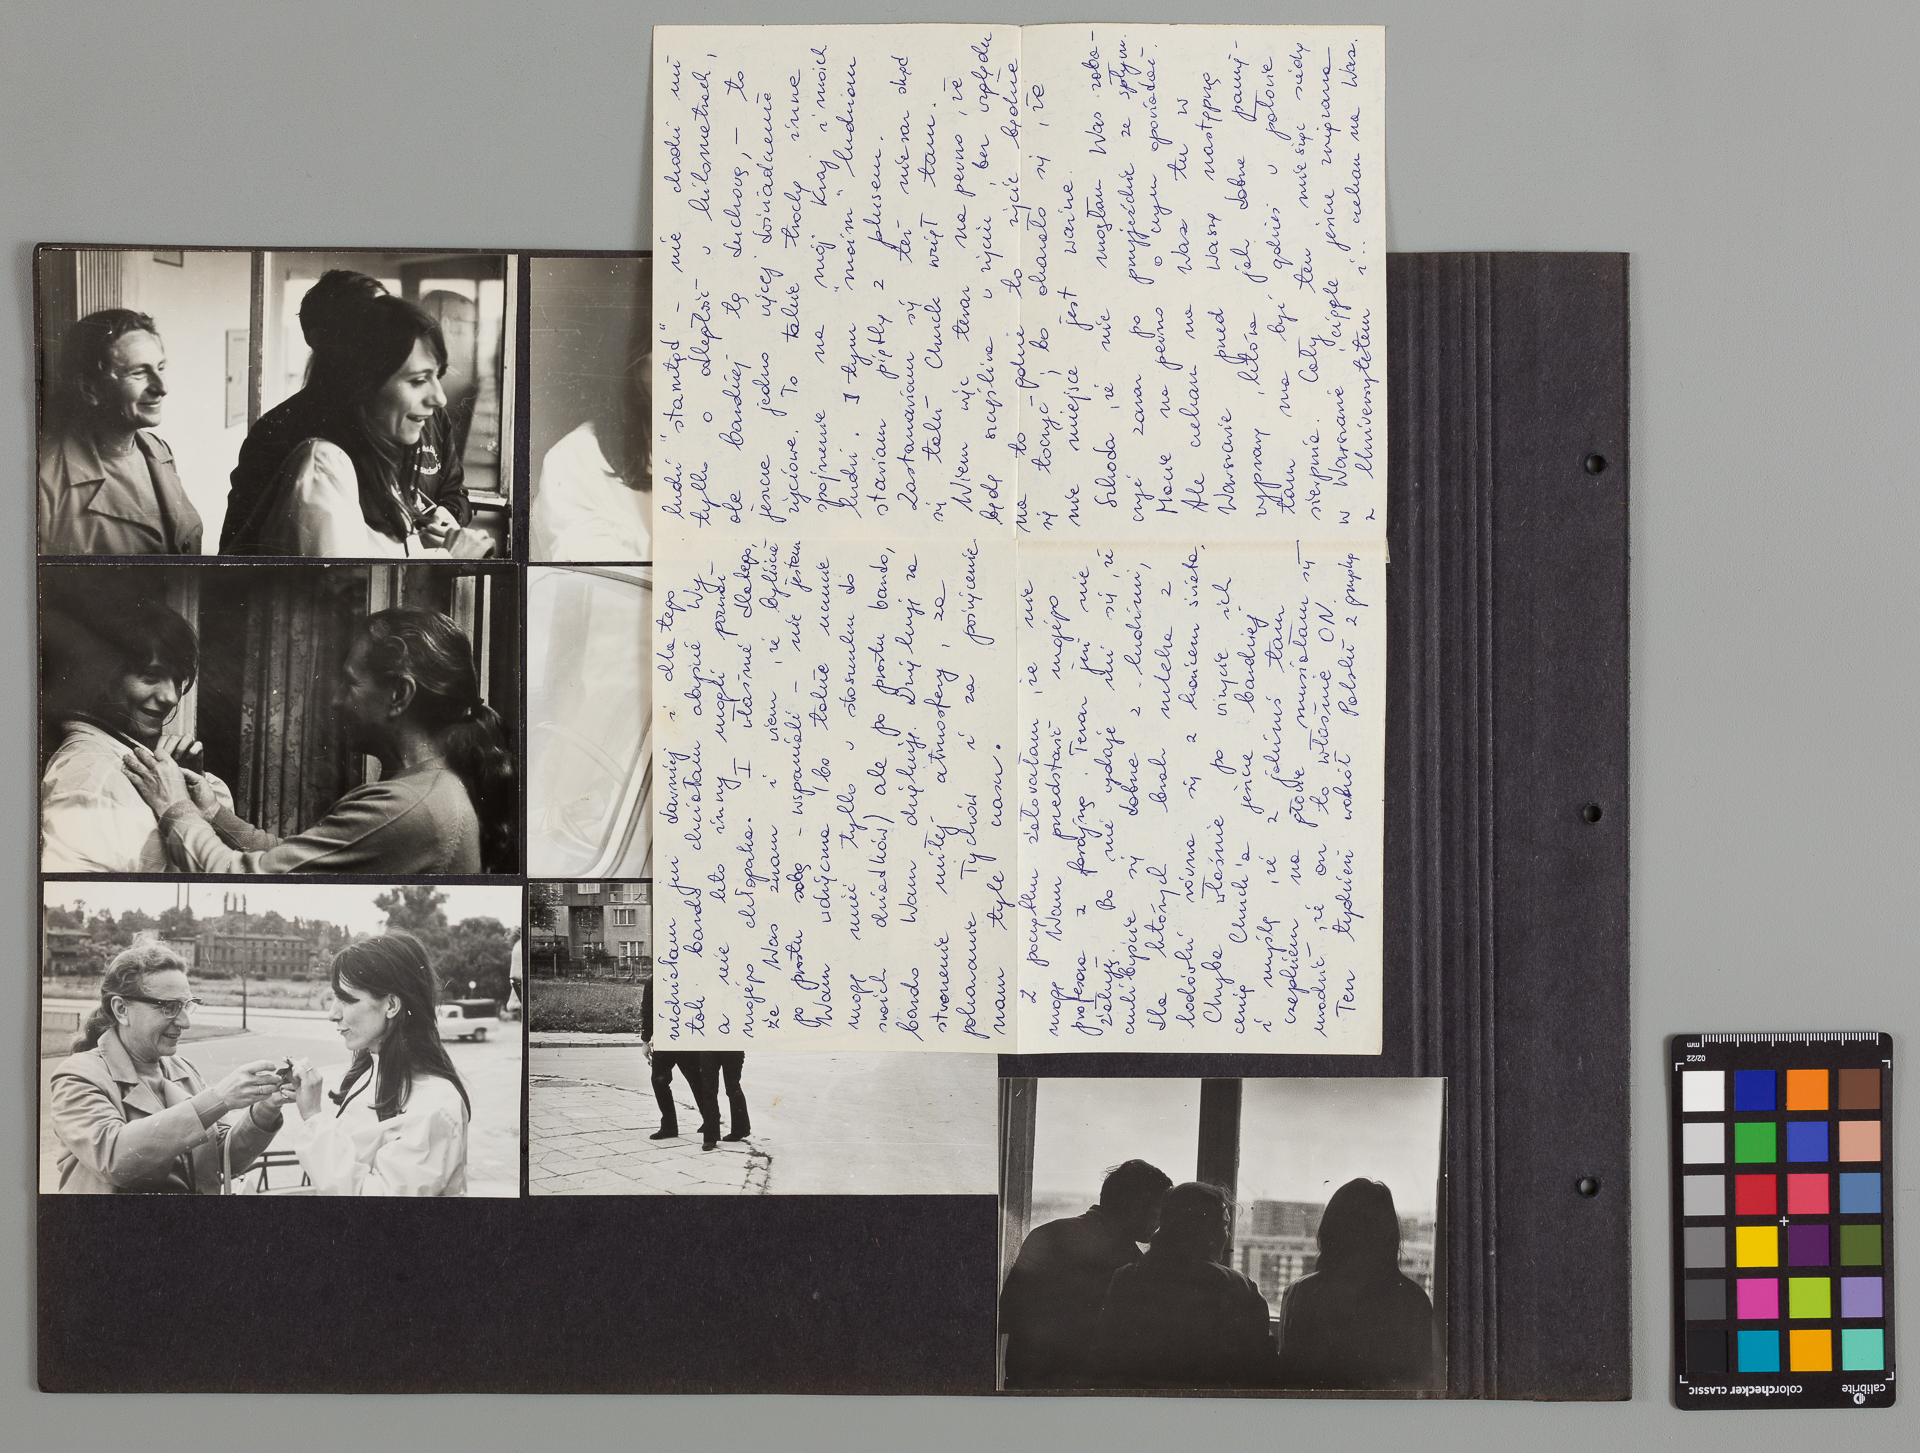 wiedziałam już dawniej i dlatego
tak bardzo chciałam abyście Wy -
a nie kto inny mogli poznać
mojego chłopaka. I właśnie dlatego,
że Was znam i wiem, że byliście
po prostu sobą - wspaniali - nie jestem
Wam wdzięczna (bo takie uczucie
mogę mieć tylko w stosunku do
moich dziadków) ale po prostu bardzo,
bardzo Wam dziękuję. Dziękuję za
stworzenie miłej atmosfery, za
pokazanie Tychów i za poświęcenie
nam tyle czasu.
Z początku żałowałam, że nie
mogę Wam przedstawić mojego
profesora z Teraz już nie
żałuję. Bo nie wydaje mi się, że
czulibyście się dobrze z ludźmi,
dla których brak mleka z
lodówki równa się z końcem świata.
Chyba właśnie po wizycie ich
cenię Chuck'a jeszcze bardziej
i myślę, że z jakimiś tam
czepkiem na głowie musiałam się
urodzić, że on to właśnie ON.
Ten tydzień wokół Polski z grupką
ludzi "stamtąd" - nie chodzi mi
tylko o odległość w kilometrach,
ale bardziej tę duchową, - to
jeszcze jedno więcej doświadczenie
życiowe. To takie trochę inne
spojrzenie na mój Kraj i moich
ludzi. I tym "moim" ludziom
stawiam piątkę z plusem.
Zastanawiam się też nieraz skąd
się taki Chuck wziął tam.
Wiem więc teraz na pewno, że
będę szczęśliwa w życiu, bez względu
na to gdzie to życie będzie
się toczyć, bo okazało się, że
nie miejsce jest ważne.
Szkoda, że nie mogłam Was zoba-
czyć zaraz po przyjeździe ze spływu.
Macie na pewno o czym opowiadać.
Ale czekam na Was tu w
Warszawie przed Waszą następną
wyprawą, która jak dobrze pamię-
tam ma być gdzieś w połowie
sierpnia. Cały ten miesiąc siedzę
w Warszawie ciągle jeszcze związana
z Uniwersytetem i.. czekam na Was.
mm
02/22
colorchecker CLASSIC
calibrite